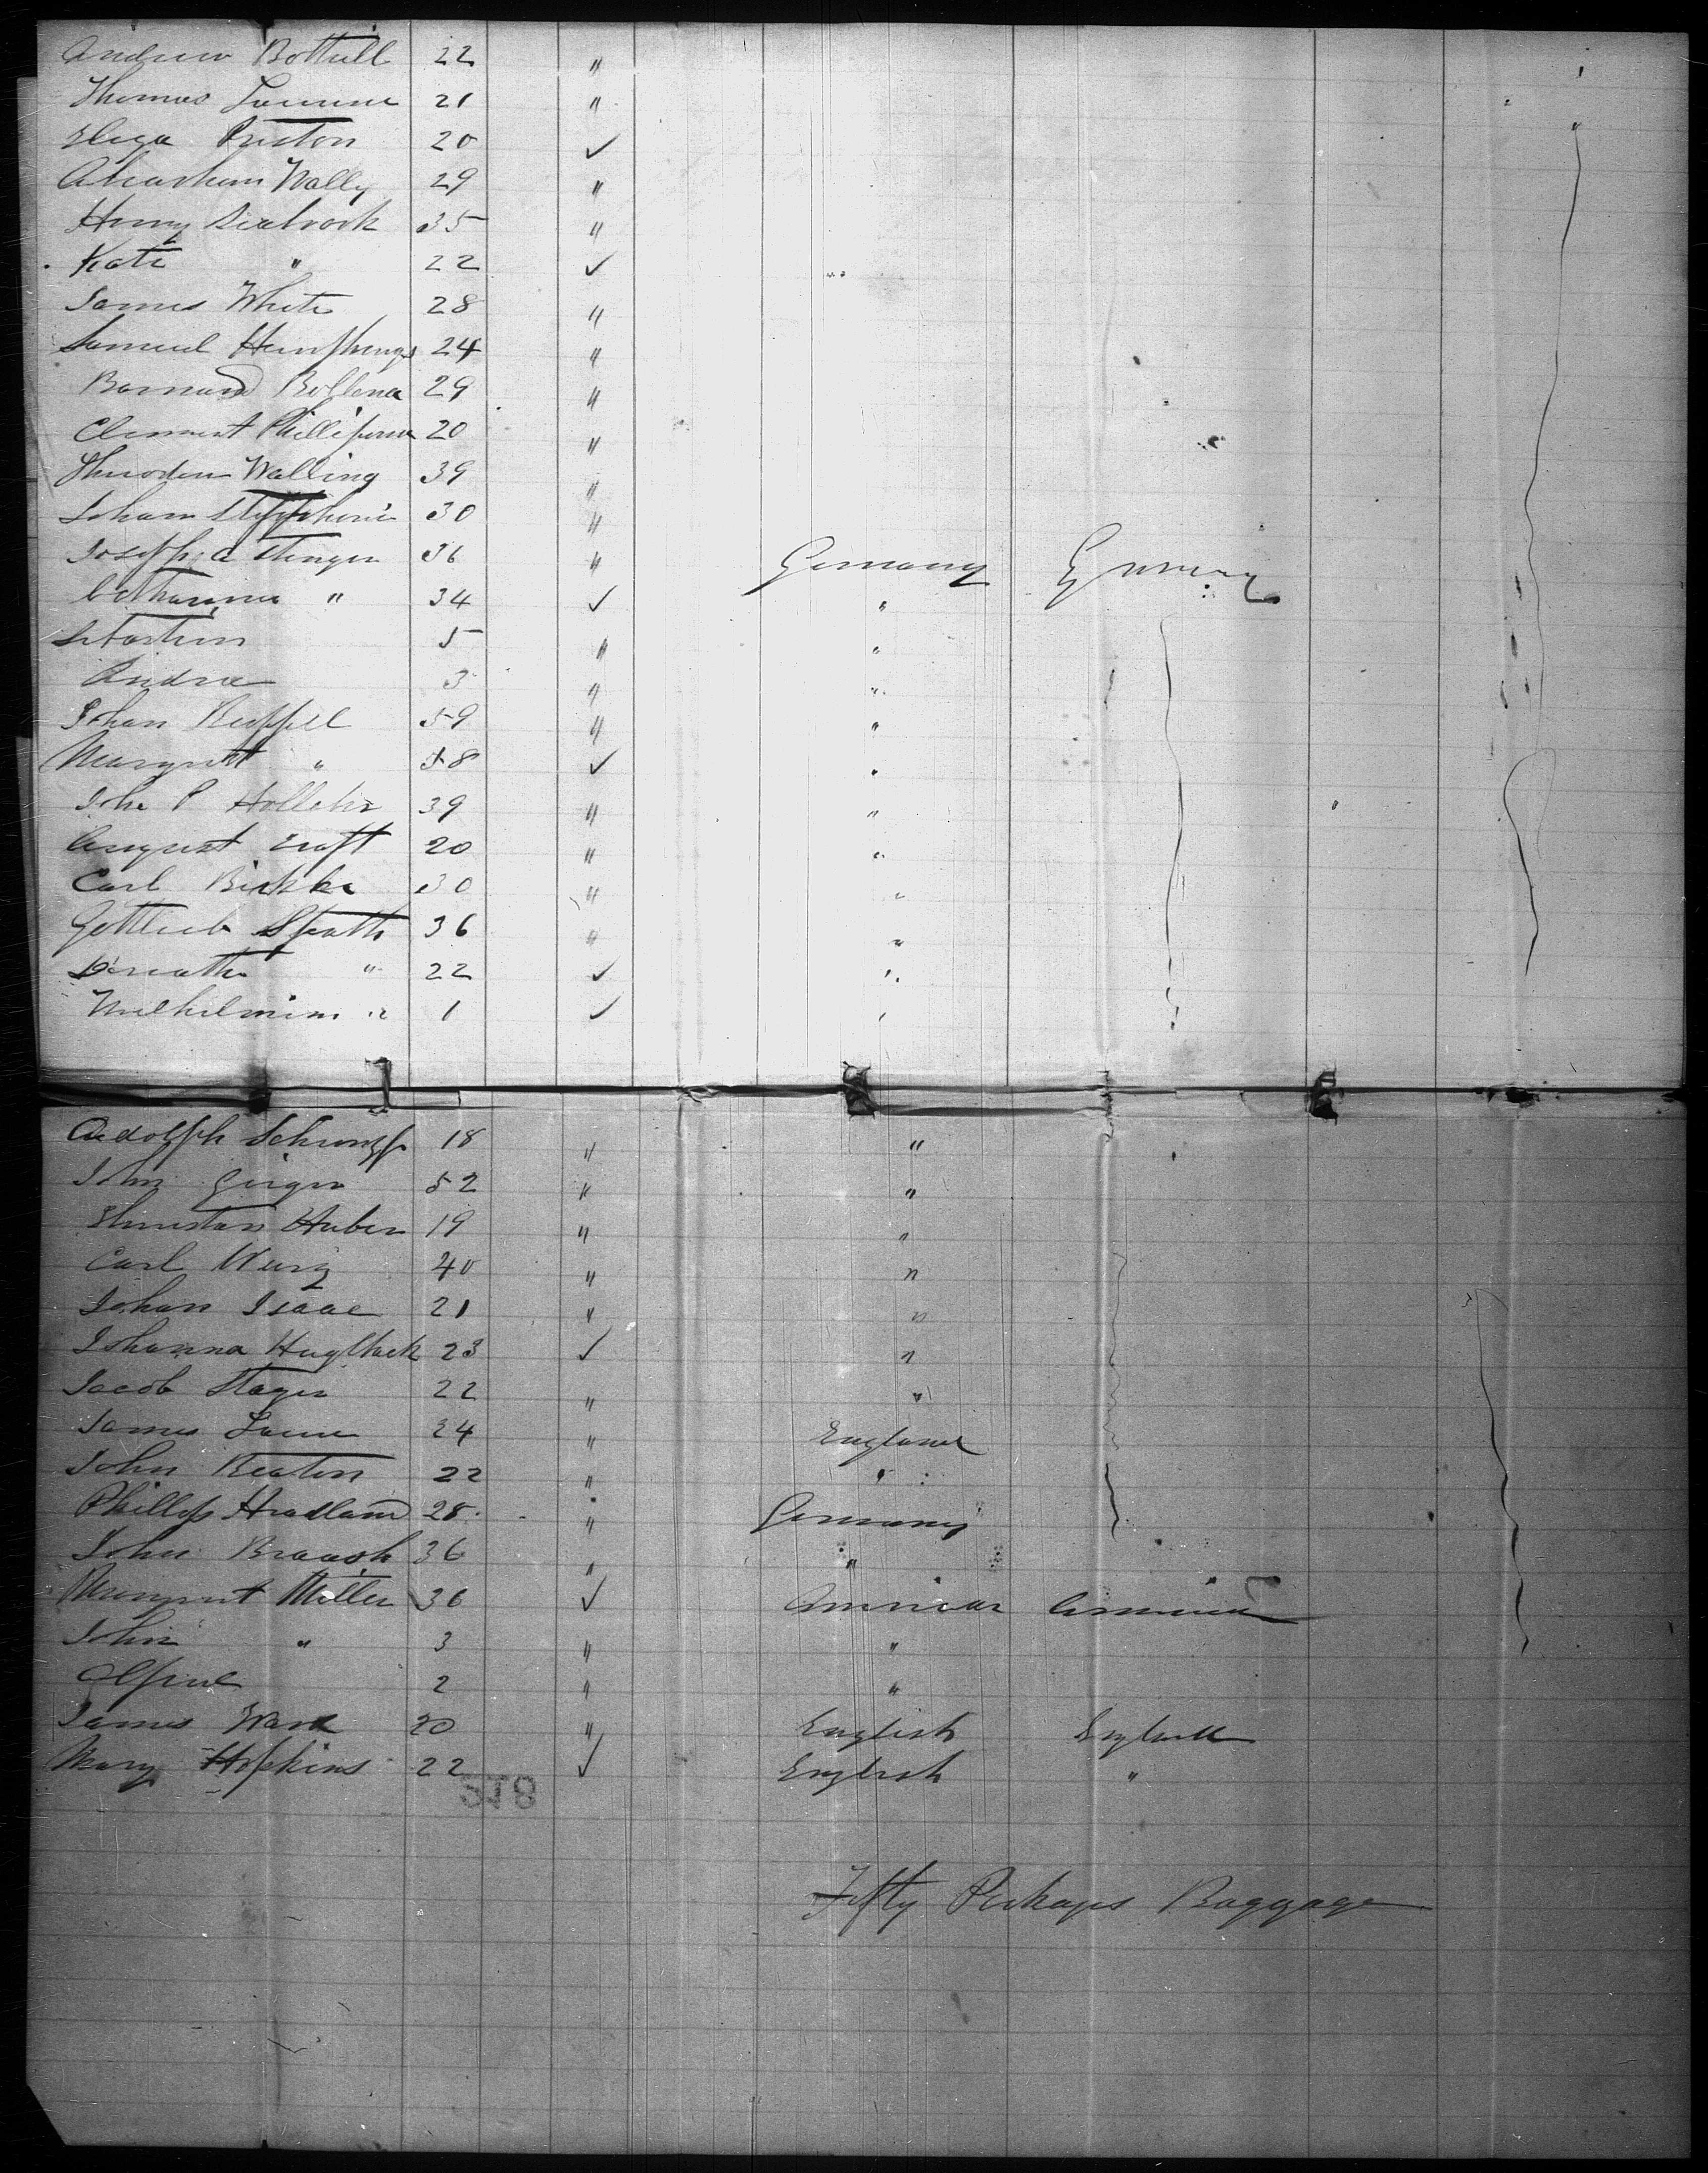 Andrew Bottrill 22 "
Thomas 21 "
Eliza Preston 20 ✓
Abraham Wally 29 "
Henry Seabrook 35 "
Kate " 22 ✓
James White 28 "
Samuel Humphreys 24 "
Barnard 29 "
Clement 20 "
Walling 39 "
Johan 30 "
Joseph A Stenger 36 " Germany Germany
Catharina " 34 ✓ "
Sebastian 5 " "
Andrea 3 " "
Johan Ruppel 59 " "
Margret " 58 ✓ "
John P 39 " "
August Kraft 20 " "
Carl 30 " "
Gottlieb Spath 36 " "
" 22 ✓ "
Wilhelmina " 1 ✓ "
Adolph Schrumpf 18 " "
John Geiger 52 " "
Christian Huber 19 " "
Carl Wurz 40 " "
Johan Isaac 21 " "
Johanna 23 ✓ "
Jacob Stager 22 " "
James 24 " England
John Beaton 22 " "
Phillip Headland 28 " Germany
John Braash 36 " "
Margret Miller 36 ✓ American America
John " 3 " "
2 " "
James Ward 20 " English England
Mary Hopkins 22 ✓ English "
218
Fifty Packages Baggage